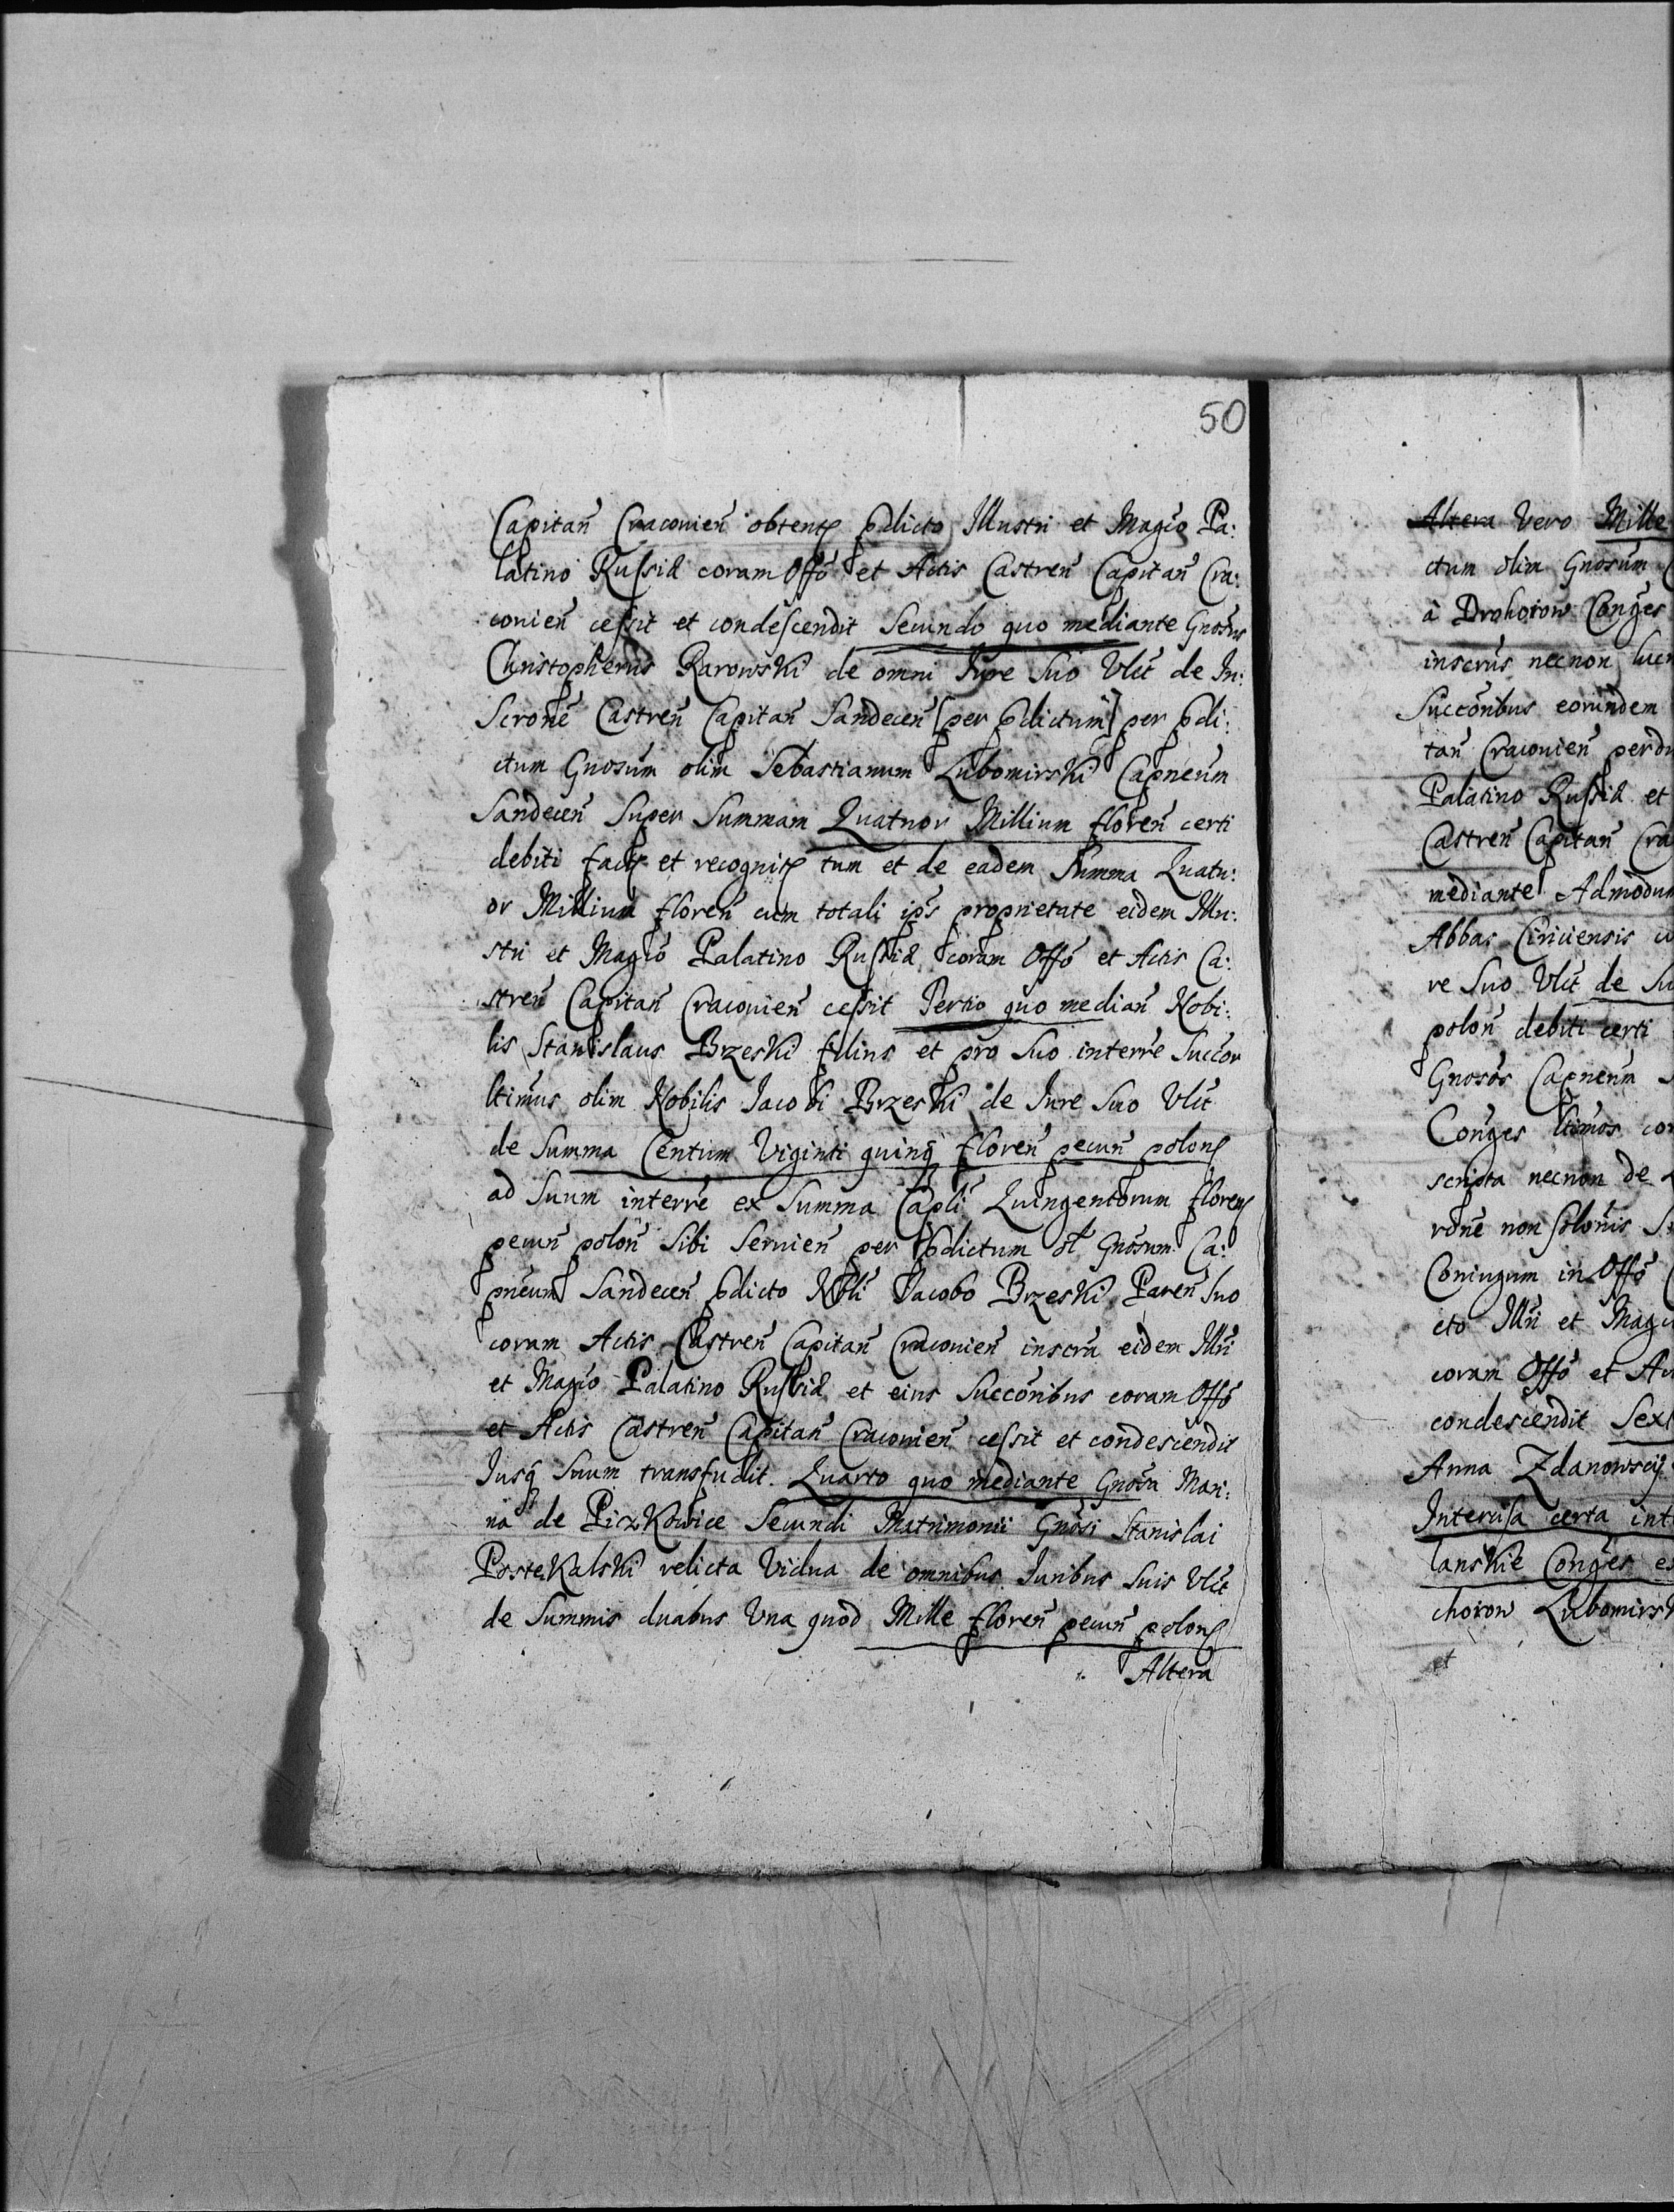 50
Capitan̄ Cracovien̄ obtent p̱dicto Illustri et Magc̄o Pa:
latino Russiæ coram Offō et Actis Castren̄ Capitan̄ Cra:
covien̄ cessit et condescendit Secundo quo mediante Gnōsus
Christopherus Rarowski de omni Iure Suo Vlīt de In:
Scronē Castren̄ Capitan̄ Sandecen̄ [per p̱dictum] per p̱di:
ctum Gnosūm olim Sebastianum Lubomirski Capneūm
Sandecen̄ Super Summam Quatuor Millium floren̄ certi
debiti fact et recognit tum et de eadem Summa Quatu:
or Millium floren̄ cum totali ips̄ proprietate eidem Illu:
stri et Magc̄o Palatino Russiæ coram Offō et Actis Ca:
stren̄ Capitan̄ Cracovien̄ cessit Tertio quo median̄ Nobi:
lis Stanislaus Brzeski filius et pro Suo interrē Succor
ltimūs olim Nobilis Iacobi Brzeski de Iure Suo Vlīt
de Summa Centum Viginti quinq̄ floren̄ pecun̄ polon
ad Suum interrē ex Summa Capli Quingentorum floren
pecun̄ polon̄ Sibi Servien̄ per p̱dictum ol Gnōsum Ca:
pneūm Sandecen̄ p̱dicto Nbli Iacobo Brzeski Paren̄ Suo
coram Actis Castren̄ Capitan̄ Cracovien̄ inscrā eidem Illrī
et Magc̄o Palatino Russiæ et eius Succōribus coram Offō
et Actis Castren̄ Capitan̄ Cracovien̄ cessit et condescendit
Iusq̄ Suum transfudit. Quarto quo mediante Gnōsa Mari:
na de Piczkowice Secundi Matrimonii Gnōsi Stanislai
Postekalski relicta Vidua de omnibus Iuribus Suis Vlīt
de Summis duabus Una quod Mille floren̄ pecun̄ polon
Altera
Altera Vero Mille
ctum olim Gnosūm
à Drohoiow Conḡes
inscrūs necnon
Succōribus eorundem
tan̄ Cracovien̄
Palatino Russiæ et
Castren̄ Capitan̄ Cra
mediante Admodum
Abbas Ciriciensis
re Suo Vlīt de Su
polon̄ debiti certi
Gnosōs Capneūm
Conḡes ltimōs
scripta necnon de
ronē non
Coniugum in Offō
cto Illrī et Magc
coram Offō et Ac
condescendit Sext
Anna Zdanowscy
Intercisa certa int
lanskie Conḡes
choiow Lubomirsk
et